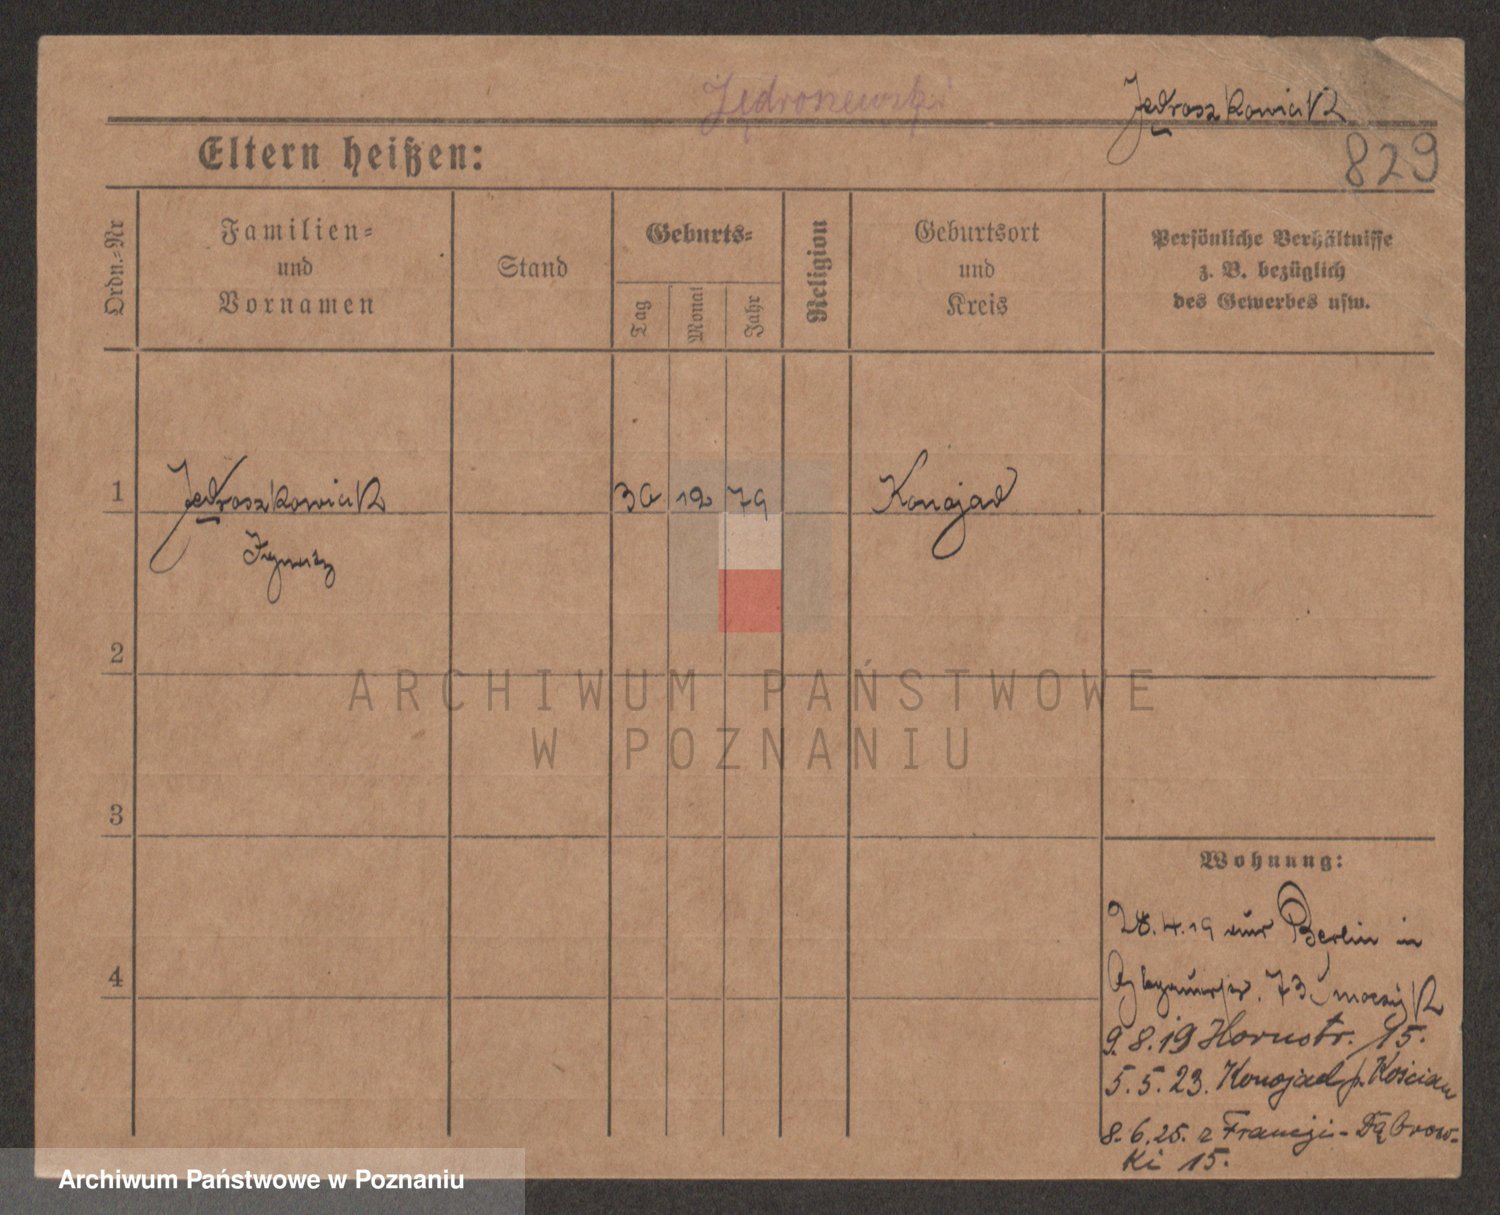 Jędroszewski
Jędroszkowiak
829
Eltern heißen:
Ordn.-Nr
Familien-
und
Vornamen
Stand
Geburts-
Tag
Monat
Jahr
Religion
Geburtsort
und
Kreis
Persönliche Verhältnisse
z. B. bezüglich
des Gewerbes usw.
1
Jędroszkowiak
Ignatz
30 12 79
Konojad
2
ARCHIWUM PAŃSTWOWE
W POZNANIU
3
Wohnung:
28.4.19 Berlin in
73
9.8.19 Hornstr. 15.
4
5.5.23. Konojad p. Kościan
8.6.25. z Francji - Dąbrow-
ki 15.
Archiwum Państwowe w Poznaniu